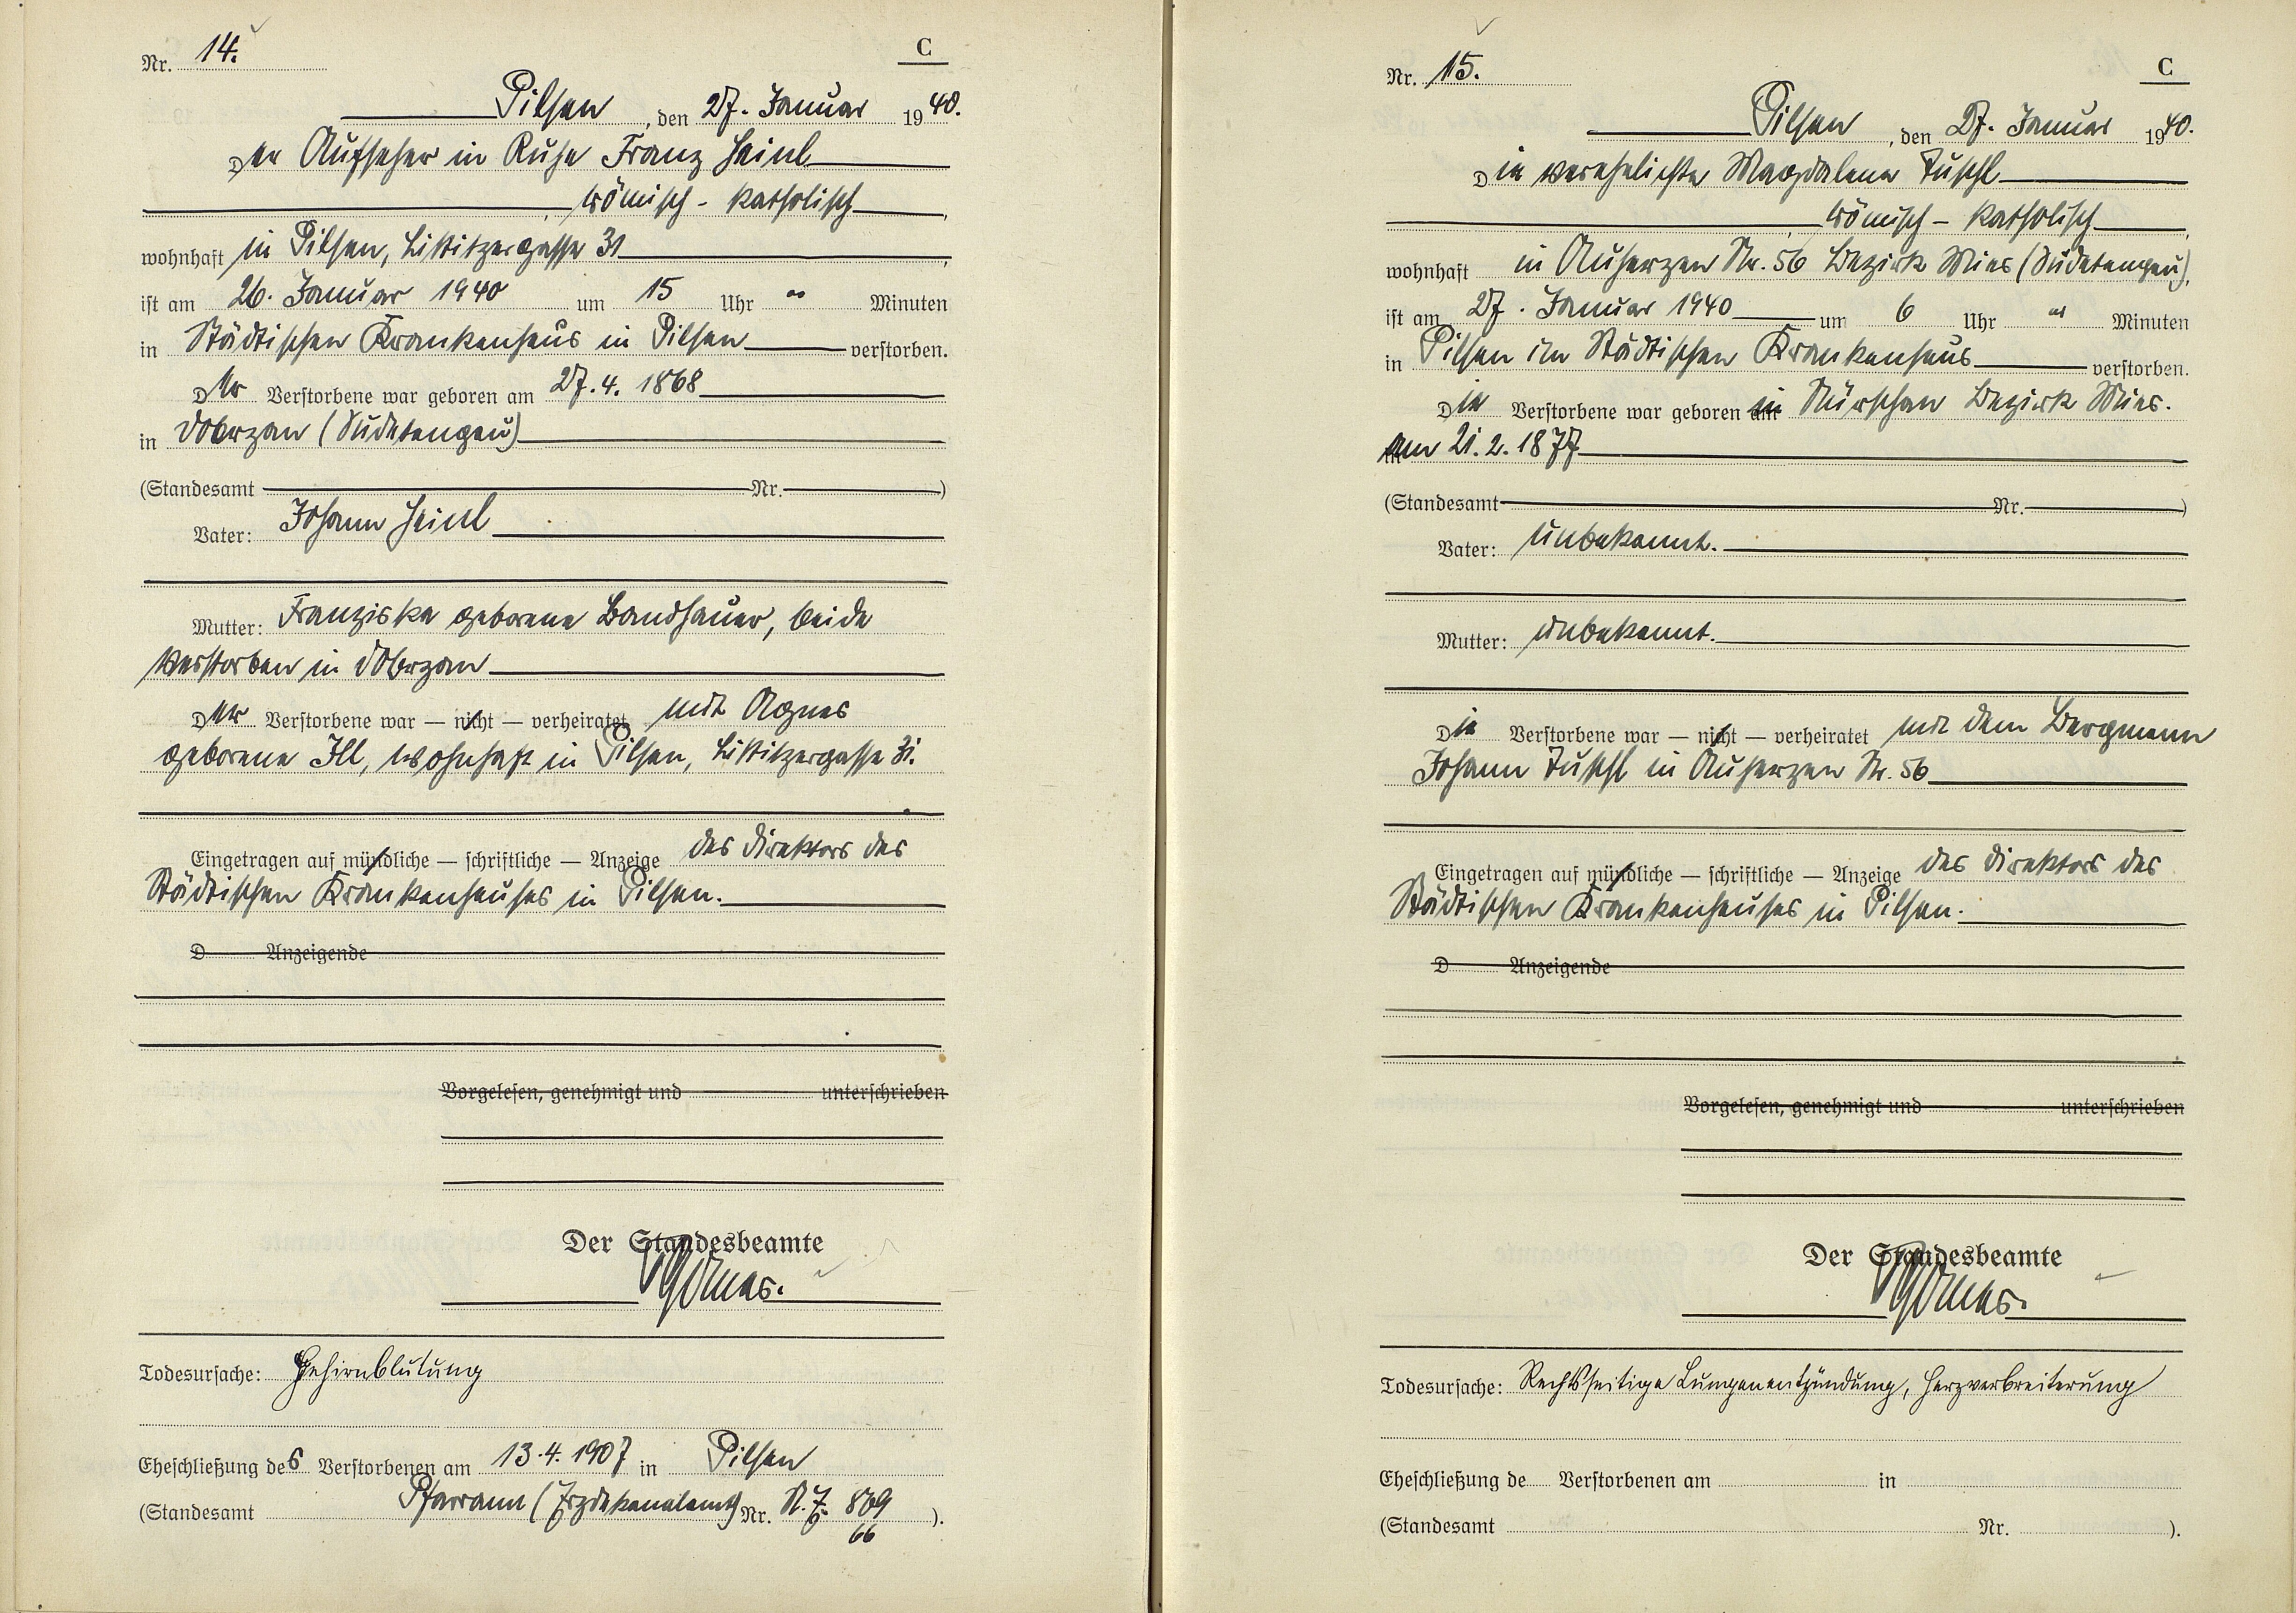 Nr. 14.
C
Pilsen, den 27. Januar 1940.
Der Aufseher in Ruhe Franz Heinl
römisch - katholisch,
wohnhaft in Pilsen, Liktitzergasse 31,
ist am 26. Januar 1940 um 15 Uhr oo Minuten
in Städtischen Krankenhaus in Pilsen verstorben.
Der Verstorbene war geboren am 27.4. 1868
in Dobrzan (Sudetengau)
(Standesamt Nr. )
Vater: Johann Heinl
Mutter: Franziska geborene Bandhauer, beide
verstorben in Dobrzan
Der Verstorbene war — nicht — verheiratet mit Agnes
geborene Ill, wohnhaft in Pilsen, Liktitzergasse 31.
Eingetragen auf mündliche — schriftliche — Anzeige des Direktors des
Städtischen Krankenhauses in Pilsen.
D Anzeigende
Vorgelesen, genehmigt und unterschrieben
Der Standesbeamte
Todesursache: Gehirnblutung
Eheschließung des Verstorbenen am 13.4. 1907 in Pilsen
(Standesamt Pfarramt (Erzdekanalamt) Nr. 869
66 ).
Nr. 15.
C
Pilsen, den 27. Januar 1940.
Die verehelichte Magdalena Tuschl
römisch - katholisch,
wohnhaft in Auherzen Nr. 56 Bezirk Mies (Sudetengau),
ist am 27. Januar 1940 um 6 Uhr oo Minuten
in Pilsen im Städtischen Krankenhaus verstorben.
Die Verstorbene war geboren in Nürschan Bezirk Mies.
am 21.2.1877
(Standesamt Nr. )
Vater: unbekannt.
Mutter: unbekannt.
Die Verstorbene war — nicht — verheiratet mit dem Bergmann
Johann Tuschl in Auherzen Nr. 56
Eingetragen auf mündliche — schriftliche — Anzeige des Direktors des
Städtischen Krankenhauses in Pilsen.
D Anzeigende
Vorgelesen, genehmigt und unterschrieben
Der Standesbeamte
Todesursache: Rechtsseitige Lungenentzündung, Herzverbreiterung
Eheschließung de Verstorbenen am in
(Standesamt Nr. ).